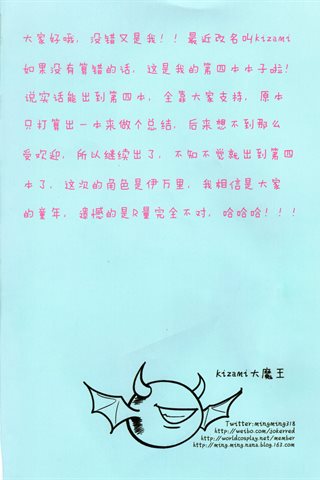 大家好哦, 没错又是我!! 最近改名叫kizami
如果没有算错的话, 这是我的第四本本子啦!
说实话能出到第四本, 全靠大家支持, 原本
只打算出一本来做个总结, 后来想不到那么
受欢迎, 所以继续出了, 不知不觉就出到第四
本了, 这次的角色是伊万里, 我相信是大家
的童年, 遗憾的是R量完全不对, 哈哈哈!!!
kizami大魔王
Twitter:mingming318
http://weibo.com/jokerred
http://worldcosplay.net/member
http://ming.ming.nana.blog.163.com